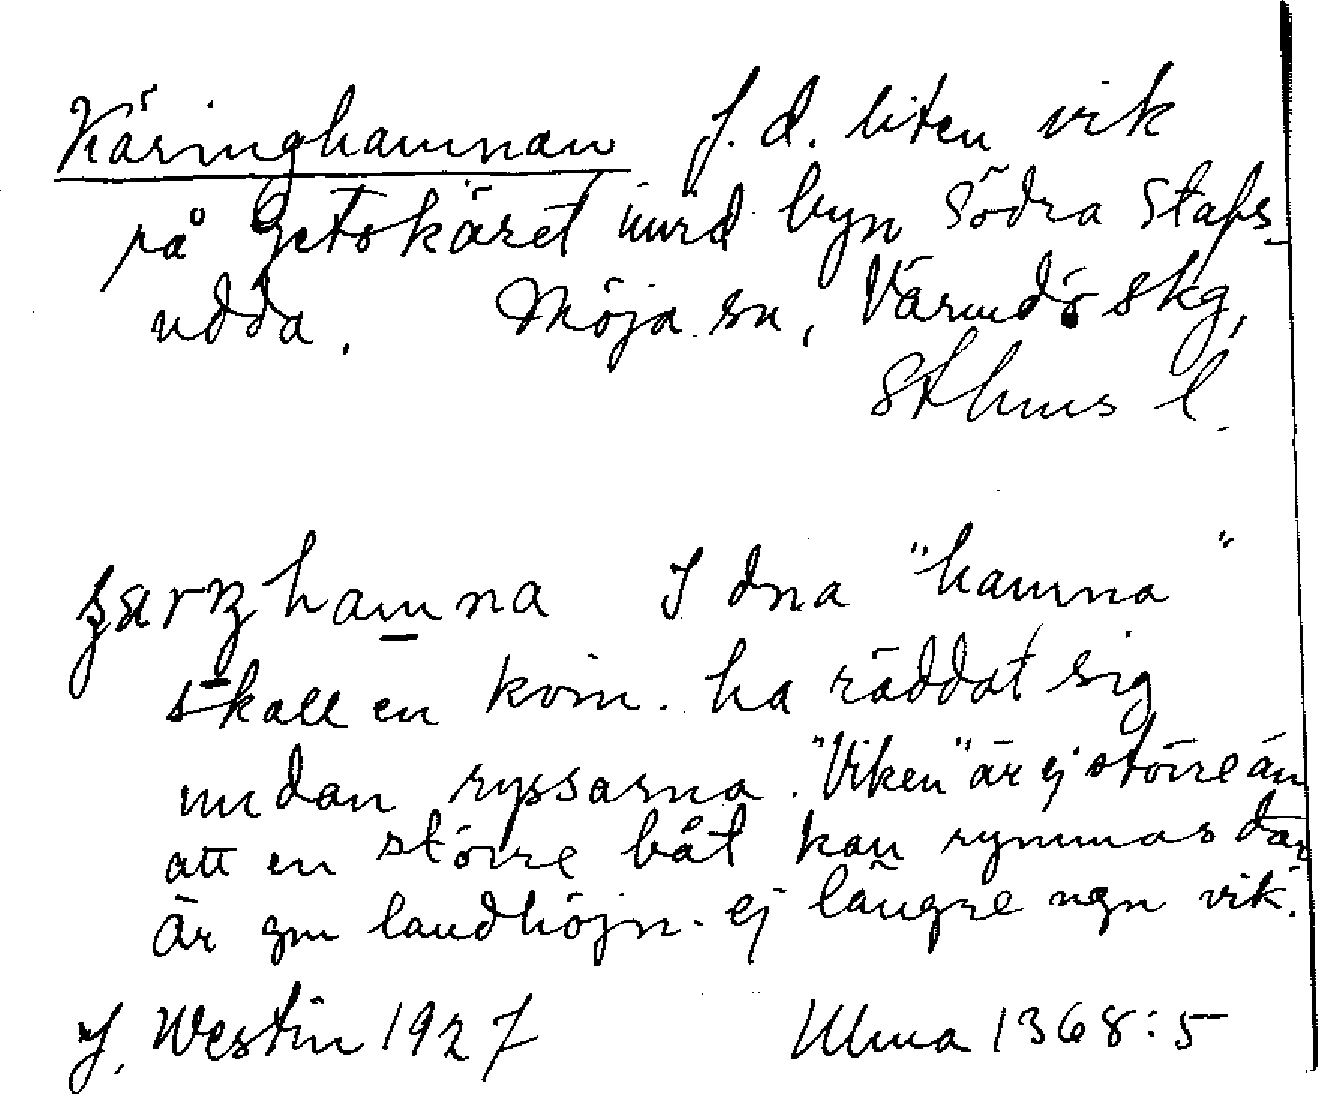 Käringhamnan f.d. liten vik
på Getokäret inv. byn Södra Stafs-
udda. Möja sn, Värmdö skg,
Sthms l.
hamna I dna "hamna"
skall en kvin. ha räddat sig
undan ryssarna. "Viken" är ej större än
att en större båt kan rymmas där
Är gm landhöjn. ej längre ngn vik.
J. Westin 1927 Ulma 1368:5